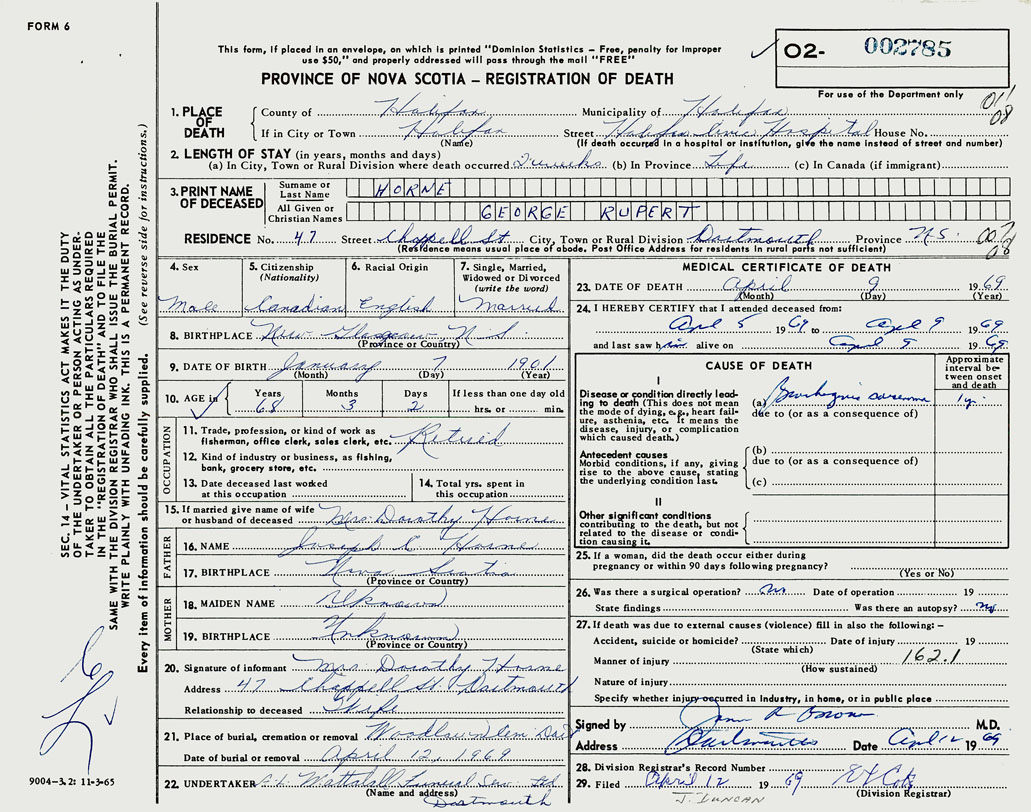 FORM 6
This form, if placed in an envelope, on which is printed "Dominion Statistics – Free, penalty for improper
use $50," and properly addressed will pass through the mail "FREE"
02- 002785
PROVINCE OF NOVA SCOTIA – REGISTRATION OF DEATH
For use of the Department only
1. PLACE OF DEATH
County of Halifax Municipality of Halifax
If in City or Town Halifax Street Halifax Civic Hospital House No.
(Name) (If death occurred in a hospital or institution, give the name instead of street and number)
2. LENGTH OF STAY (in years, months and days)
(a) In City, Town or Rural Division where death occurred 2 weeks (b) In Province Life (c) In Canada (if immigrant)
3. PRINT NAME OF DECEASED
Surname or Last Name HORNE
All Given or Christian Names GEORGE RUPERT
RESIDENCE No. 47 Street Chappell St City, Town or Rural Division Dartmouth Province N.S.
(Residence means usual place of abode. Post Office Address for residents in rural parts not sufficient)
4. Sex Male
5. Citizenship (Nationality) Canadian
6. Racial Origin English
7. Single, Married, Widowed or Divorced (write the word) Married
8. BIRTHPLACE New Glasgow, N.S.
(Province or Country)
9. DATE OF BIRTH January 7 1901
(Month) (Day) (Year)
10. AGE in Years 68 Months 3 Days 2 If less than one day old hrs. or min.
OCCUPATION
11. Trade, profession, or kind of work as fisherman, office clerk, sales clerk, etc. Retired
12. Kind of industry or business, as fishing, bank, grocery store, etc.
13. Date deceased last worked at this occupation
14. Total yrs. spent in this occupation
15. If married give name of wife or husband of deceased Mrs. Dorothy Horne
FATHER
16. NAME Joseph Horne
17. BIRTHPLACE Nova Scotia
(Province or Country)
MOTHER
18. MAIDEN NAME Uknown
19. BIRTHPLACE Unknown
(Province or Country)
20. Signature of informant Mrs Dorothy Horne
Address 47 Chappell St. Dartmouth
Relationship to deceased Wife
21. Place of burial, cremation or removal Woodlawn Dart
Date of burial or removal April 12, 1969
22. UNDERTAKER Mattatall Funeral Ser. Ltd
(Name and address)
Dartmouth
MEDICAL CERTIFICATE OF DEATH
23. DATE OF DEATH April 9 1969
(Month) (Day) (Year)
24. I HEREBY CERTIFY that I attended deceased from:
April 5 1969 to April 9 1969
and last saw him alive on April 9 1969
CAUSE OF DEATH
Approximate interval between onset and death
I
Disease or condition directly leading to death (This does not mean the mode of dying, e.g., heart failure, asthenia, etc. It means the disease, injury, or complication which caused death.)
(a) 1 yr.
due to (or as a consequence of)
Antecedent causes
Morbid conditions, if any, giving rise to the above cause, stating the underlying condition last.
(b)
due to (or as a consequence of)
(c)
II
Other significant conditions contributing to the death, but not related to the disease or condition causing it.
25. If a woman, did the death occur either during pregnancy or within 90 days following pregnancy?
(Yes or No)
26. Was there a surgical operation? no Date of operation 19
State findings Was there an autopsy? no
27. If death was due to external causes (violence) fill in also the following: –
Accident, suicide or homicide? Date of injury 19
(State which)
Manner of injury 162.1
(How sustained)
Nature of injury
Specify whether injury occurred in industry, in home, or in public place
Signed by M.D.
Address Dartmouth Date April 12 1969
28. Division Registrar's Record Number
29. Filed April 12 1969
(Division Registrar)
J. DUNCAN
SEC. 14 – VITAL STATISTICS ACT MAKES IT THE DUTY
OF THE UNDERTAKER OR PERSON ACTING AS UNDER-
TAKER TO OBTAIN ALL THE PARTICULARS REQUIRED
IN THE "REGISTRATION OF DEATH" AND TO FILE THE
SAME WITH THE DIVISION REGISTRAR WHO SHALL ISSUE THE BURIAL PERMIT.
WRITE PLAINLY WITH UNFADING INK. THIS IS A PERMANENT RECORD.
Every item of information should be carefully supplied. (See reverse side for instructions.)
9004-3.2: 11-3-65